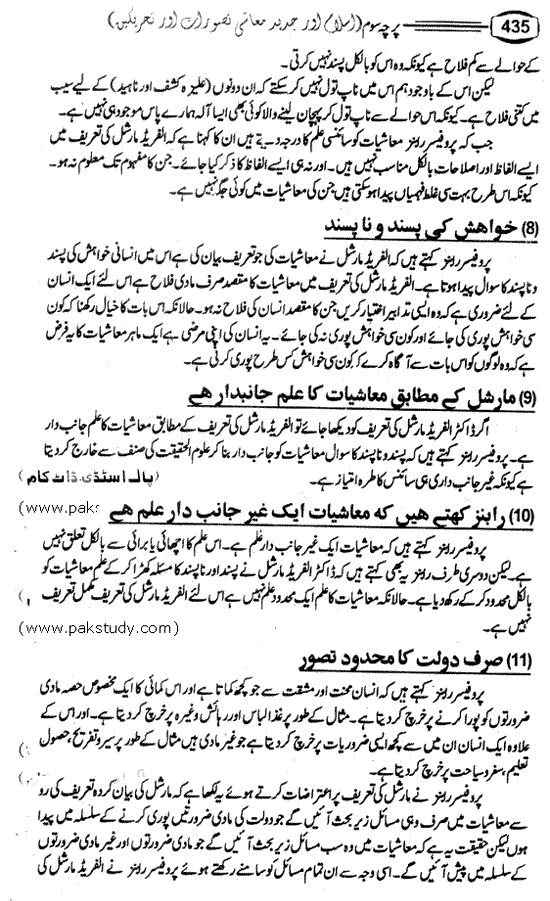 435 پرچہ سوم (اسلام اور جدید معاشی تصورات اور تحریکیں)
کے حوالے سے کم فلاح ہے کیونکہ وہ اس کو بالکل پسند نہیں کرتی۔
لیکن اس کے باوجود ہم اس میں ناپ تول نہیں کر سکتے کہ ان دونوں (علیزہ کشف اور ناہید) کے لیے سیب
میں کتنی فلاح ہے۔ کیونکہ اس حوالے سے ناپ تول کر پہچان لینے والا کوئی بھی ایسا آلہ ہمارے پاس موجود ہی نہیں ہے۔
جب کہ پروفیسر رابنز معاشیات کو سائنسی علم کا درجہ دیتے ہیں ان کا کہنا ہے کہ الفریڈ مارشل کی تعریف میں
ایسے الفاظ اور اصلاحات بالکل مناسب نہیں ہیں۔ اور نہ ہی ایسے الفاظ کا ذکر کیا جائے۔ جن کا مفہوم تک معلوم نہ ہو۔
کیونکہ اس طرح بہت سی غلط فہمیاں پیدا ہو سکتی ہیں جن کی معاشیات میں کوئی جگہ نہیں ہے۔
(8) خواھش کی پسند و نا پسند
پروفیسر رابنز کہتے ہیں کہ الفریڈ مارشل نے معاشیات کی جو تعریف بیان کی ہے اس میں انسانی خواہش کی پسند
و ناپسند کا سوال پیدا ہوتا ہے۔ الفریڈ مارشل کی تعریف میں معاشیات کا مقصد صرف مادی فلاح ہے اس لئے ایک انسان
کے لئے ضروری ہے کہ وہ ایسی تدابیر اختیار کریں جن کا مقصد انسان کی فلاح نہ ہو۔ حالانکہ اس بات کا خیال رکھنا کہ کون
سی خواہش پوری کی جائے اور کون سی خواہش پوری نہ کی جائے۔ یہ انسان کی اپنی مرضی ہے ایک ماہر معاشیات کا یہ فرض
ہے کہ وہ لوگوں کو اس بات سے آگاہ کرے کہ کون سی خواہش کس طرح پوری کرنی ہے۔
(9) مارشل کے مطابق معاشیات کا علم جانبدار ھے
اگر ڈاکٹر الفریڈ مارشل کی تعریف کو دیکھا جائے تو الفریڈ مارشل کی تعریف کے مطابق معاشیات کا علم جانب دار
ہے۔ پروفیسر رابنز کہتے ہیں کہ پسند و ناپسند کا سوال معاشیات کو جانب دار بنا کر علوم الحقیقت کی صنف سے خارج کر دیتا
ہے کیونکہ غیر جانب داری ہی سائنس کا طرہ امتیاز ہے۔ پاک اسٹڈی ڈاٹ کام
(10) رابنز کھتے ھیں کہ معاشیات ایک غیر جانب دار علم ھے (www.paks
پروفیسر رابنز کہتے ہیں کہ معاشیات ایک غیر جانب دار علم ہے۔ اس علم کا اچھائی یا برائی سے بالکل تعلق نہیں
ہے۔ لیکن دوسری طرف رابنز یہ بھی کہتے ہیں کہ ڈاکٹر الفریڈ مارشل نے پسند اور ناپسند کا مسئلہ کھڑا کر کے علم معاشیات کو
بالکل محدود کر کے رکھ دیا ہے۔ حالانکہ معاشیات کا علم ایک محدود علم نہیں ہے اس لئے الفریڈ مارشل کی تعریف مکمل تعریف
نہیں ہے۔ (www.pakstudy.com)
(11) صرف دولت کا محدود تصور
پروفیسر رابنز کہتے ہیں کہ انسان محنت اور مشقت سے جو کچھ کماتا ہے اور اس کمائی کا ایک مخصوص حصہ مادی
ضرورتوں کو پورا کرنے پر خرچ کر دیتا ہے۔ مثال کے طور پر غذا لباس اور رہائش وغیرہ پر خرچ کر دیتا ہے۔ اور اس کے
علاوہ ایک انسان ان میں سے کچھ ایسی ضروریات پر خرچ کر دیتا ہے جو غیر مادی ہیں مثال کے طور پر سیر و تفریح، حصول
تعلیم، سفر و سیاحت پر خرچ کر دیتا ہے۔
پروفیسر رابنز نے مارشل کی تعریف پر اعتراضات کرتے ہوئے یہ لکھا ہے کہ مارشل کی بیان کردہ تعریف کی رو
سے معاشیات میں صرف وہی مسائل زیر بحث آئیں گے جو دولت کی مادی ضرورتیں پوری کرنے کے سلسلہ میں پیدا
ہوں لیکن حقیقت یہ ہے کہ معاشیات میں وہ سب مسائل زیر بحث آئیں گے جو مادی ضرورتوں اور غیر مادی ضرورتوں
کے سلسلہ میں پیش آئیں گے۔ اسی وجہ سے ان تمام مسائل کو سامنے رکھتے ہوئے پروفیسر رابنز نے الفریڈ مارشل کی